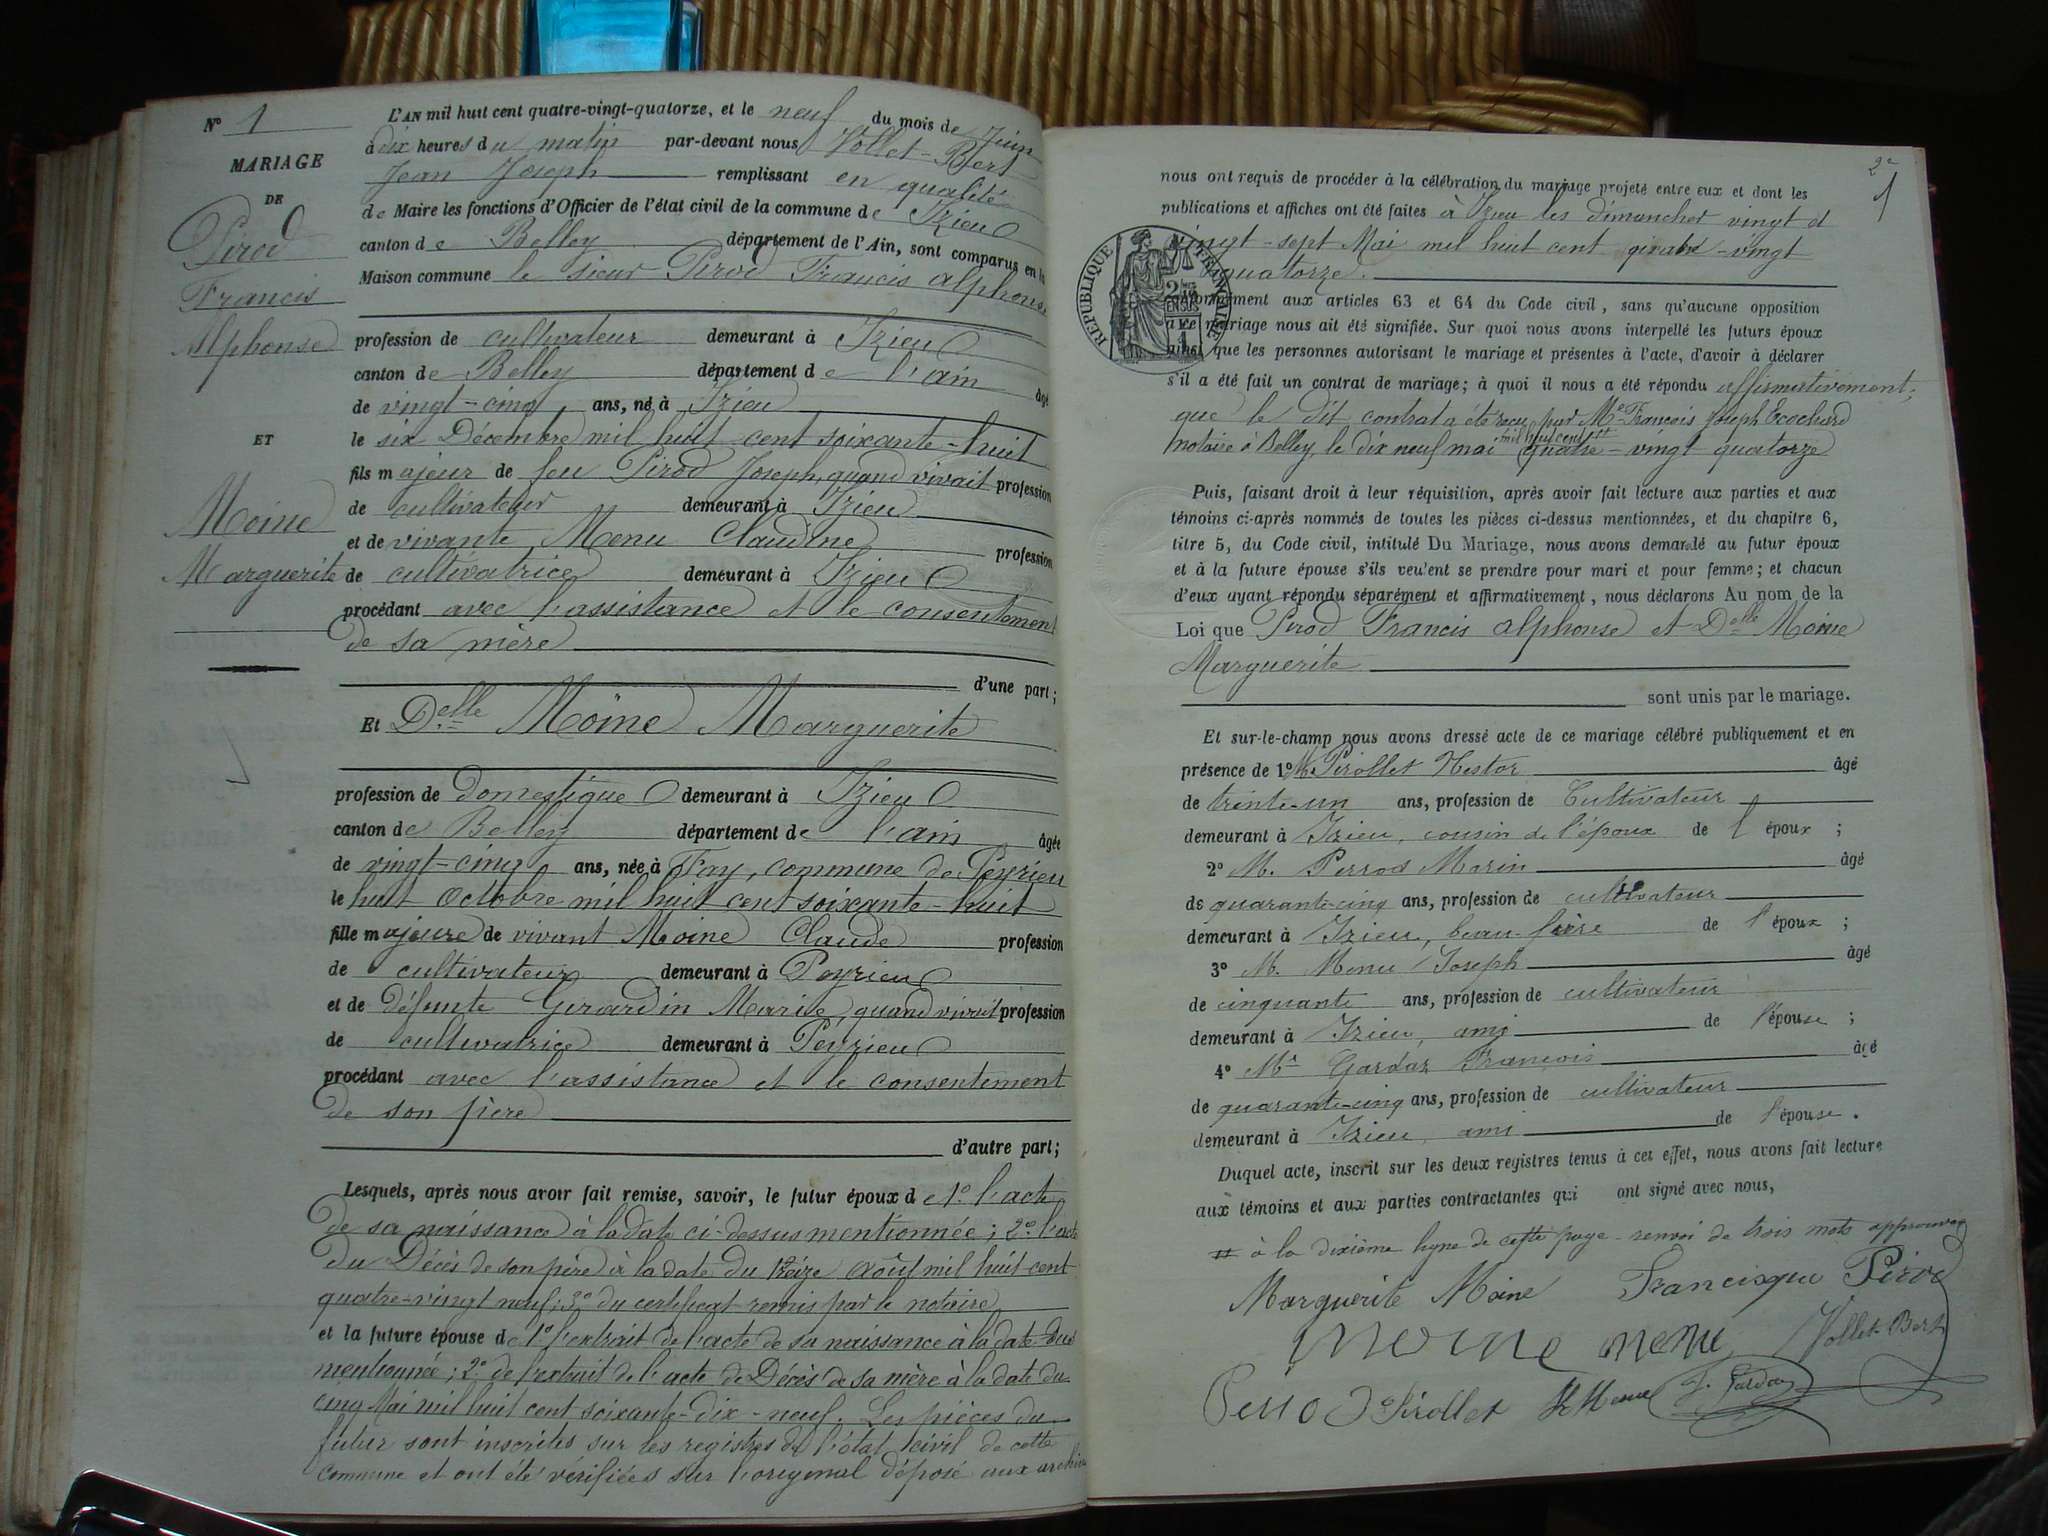 N° 1
MARIAGE
DE
Pirod
Francis
Alphonse
ET
Moine
Marguerite
L'AN mil huit cent quatre-vingt-quatorze, et le neuf du mois de Juin
à dix heures du matin par-devant nous Vollet-Bert
Jean Joseph remplissant en qualité
de Maire les fonctions d'Officier de l'état civil de la commune de Izieu
canton de Belley département de l'Ain, sont comparus en la
Maison commune le sieur Pirod Francis alphonse
profession de cultivateur demeurant à Izieu
canton de Belley département de l'ain âgé
de vingt-cinq ans, né à Izieu
le six Décembre mil huit cent soixante-huit
fils majeur de feu Pirod Joseph, quand vivait profession
de cultivateur demeurant à Izieu
et de vivante Menu Claudine profession
de cultivatrice demeurant à Izieu
procédant avec l'assistance et le consentement
de sa mère
d'une part;
Et Delle Moine Marguerite
profession de domestique demeurant à Izieu
canton de Belley département de l'ain âgée
de vingt-cinq ans, née à Fay, commune de Peyrieu
le huit Octobre mil huit cent soixante-huit
fille majeure de vivant Moine Claude profession
de cultivateur demeurant à Peyrieu
et de défunte Girardin Marie, quand vivait profession
de cultivatrice demeurant à Peyrieu
procédant avec l'assistance et le consentement
de son père
d'autre part;
Lesquels, après nous avoir fait remise, savoir, le futur époux de 1° l'acte
de sa naissance à la date ci-dessus mentionnée; 2° l'acte
du Décès de son père à la date du août mil huit cent
quatre-vingt neuf; 3° du certificat remis par le notaire
et la future épouse de 1° l'extrait de l'acte de sa naissance à la date sus
mentionnée; 2° de l'extrait de l'acte de Décès de sa mère à la date du
cinq Mai mil huit cent soixante-dix-neuf. Les pièces du
futur sont inscrites sur les registres de l'état civil de cette
commune et ont été vérifiées sur l'original déposé aux archives
2e
1
nous ont requis de procéder à la célébration du mariage projeté entre eux et dont les
publications et affiches ont été faites à Izieu les dimanches vingt et
vingt-sept Mai mil huit cent quatre-vingt
quatorze.
RÉPUBLIQUE FRANÇAISE
conformément aux articles 63 et 64 du Code civil, sans qu'aucune opposition
à ce mariage nous ait été signifiée. Sur quoi nous avons interpellé les futurs époux
ainsi que les personnes autorisant le mariage et présentes à l'acte, d'avoir à déclarer
s'il a été fait un contrat de mariage; à quoi il nous a été répondu affirmativement;
que le dit contrat a été reçu par Me François Joseph Ecochard
mil huit cent #
notaire à Belley, le dix neuf mai quatre-vingt quatorze
Puis, faisant droit à leur réquisition, après avoir fait lecture aux parties et aux
témoins ci-après nommés de toutes les pièces ci-dessus mentionnées, et du chapitre 6,
titre 5, du Code civil, intitulé Du Mariage, nous avons demandé au futur époux
et à la future épouse s'ils veulent se prendre pour mari et pour femme; et chacun
d'eux ayant répondu séparément et affirmativement, nous déclarons Au nom de la
Loi que Pirod Francis alphonse et Delle Moine
Marguerite
sont unis par le mariage.
Et sur-le-champ nous avons dressé acte de ce mariage célébré publiquement et en
présence de 1° M. Pirollet Nestor âgé
de trente-un ans, profession de Cultivateur
demeurant à Izieu, cousin de l'époux de l'époux;
2° M. Perrod Marin âgé
de quarante-cinq ans, profession de cultivateur
demeurant à Izieu, beau-frère de l'époux;
3° M. Menu Joseph âgé
de cinquante ans, profession de cultivateur
demeurant à Izieu, ami de l'épouse;
4° Mr Gardaz François âgé
de quarante-cinq ans, profession de cultivateur
demeurant à Izieu, ami de l'épouse.
Duquel acte, inscrit sur les deux registres tenus à cet effet, nous avons fait lecture
aux témoins et aux parties contractantes qui ont signé avec nous,
# à la dixième ligne de cette page renvoi de trois mots approuvés
Marguerite Moine Francisque Pirod
moine menu Vollet-Bert
Pirollet Menu